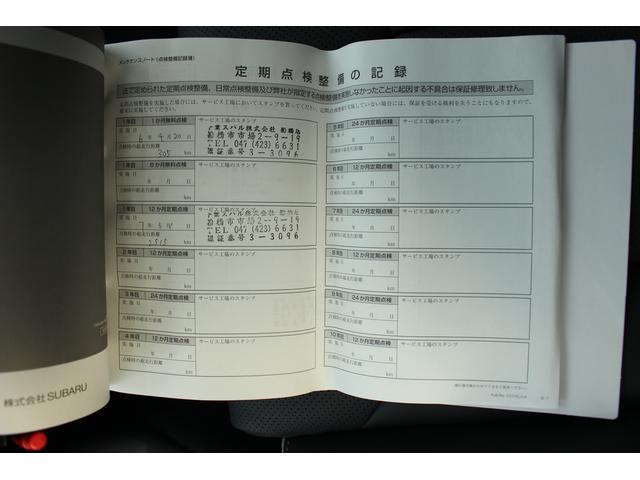 メンテナンスノート(点検整備記録簿)
定期点検整備の記録
法で定められた定期点検整備、日常点検整備及び弊社が指定する点検整備を実施しなかったことに起因する不具合は保証修理致しません。
定期点検整備を実施した場合には、サービス工場においてスタンプを貰ってください。
1年目 1か月無料点検 サービス工場のスタンプ
実施日
6年4月20日
点検時の総走行距離
305 km
千葉スバル株式会社 船橋店
船橋市市場2-9-19
TEL 047(423)6631
認証番号3-3096
1年目 6か月無料点検 サービス工場のスタンプ
実施日
年 月 日
点検時の総走行距離
km
1年目 12か月定期点検 サービス工場のスタンプ
実施日
点検時の総走行距離
2515 km
船橋市市場2-9-19
TEL 047(423)6631
認証番号3-3096
2年目 12か月定期点検 サービス工場のスタンプ
実施日
年 月 日
点検時の総走行距離
km
3年目 24か月定期点検 サービス工場のスタンプ
実施日
年 月 日
点検時の総走行距離
km
4年目 12か月定期点検 サービス工場のスタンプ
実施日
年 月 日
点検時の総走行距離
km
5年目 24か月定期点検 サービス工場のスタンプ
実施日
年 月 日
点検時の総走行距離
km
6年目 12か月定期点検 サービス工場のスタンプ
実施日
年 月 日
点検時の総走行距離
km
7年目 24か月定期点検 サービス工場のスタンプ
実施日
年 月 日
点検時の総走行距離
km
8年目 12か月定期点検 サービス工場のスタンプ
実施日
年 月 日
点検時の総走行距離
km
9年目 24か月定期点検 サービス工場のスタンプ
実施日
年 月 日
点検時の総走行距離
km
10年目 12か月定期点検 サービス工場のスタンプ
実施日
年 月 日
点検時の総走行距離
km
株式会社SUBARU